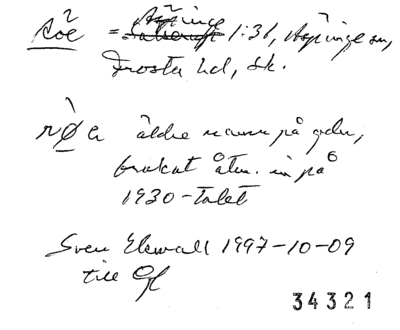 Röe = Äspinge 1:31, Äspinge sn,
Frosta hd, Sk.
rø̀a äldre namn på gdn,
brukat åtm. in på
1930-talet
Sven Ekwall 1997-10-09
till Gf
34321